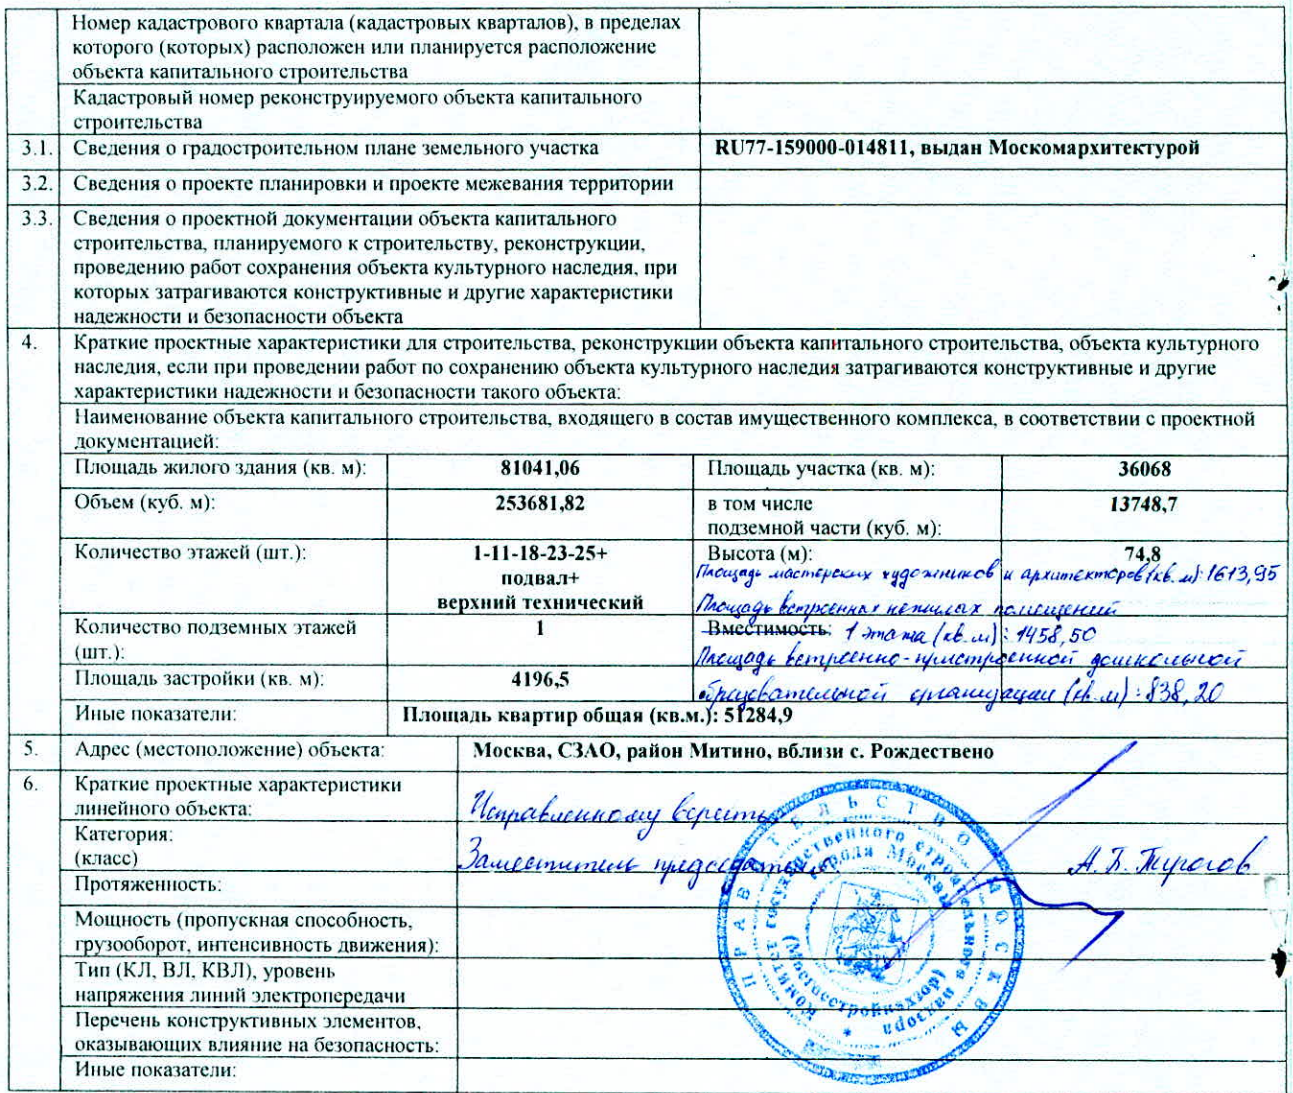 Номер кадастрового квартала (кадастровых кварталов), в пределах
которого (которых) расположен или планируется расположение
объекта капитального строительства
Кадастровый номер реконструируемого объекта капитального
строительства
3.1. Сведения о градостроительном плане земельного участка RU77-159000-014811, выдан Москомархитектурой
3.2. Сведения о проекте планировки и проекте межевания территории
3.3. Сведения о проектной документации объекта капитального
строительства, планируемого к строительству, реконструкции,
проведению работ сохранения объекта культурного наследия, при
которых затрагиваются конструктивные и другие характеристики
надежности и безопасности объекта
4. Краткие проектные характеристики для строительства, реконструкции объекта капитального строительства, объекта культурного
наследия, если при проведении работ по сохранению объекта культурного наследия затрагиваются конструктивные и другие
характеристики надежности и безопасности такого объекта:
Наименование объекта капитального строительства, входящего в состав имущественного комплекса, в соответствии с проектной
документацией:
Площадь жилого здания (кв. м): 81041,06 Площадь участка (кв. м): 36068
Объем (куб. м): 253681,82 в том числе 13748,7
подземной части (куб. м):
Количество этажей (шт.): 1-11-18-23-25+ Высота (м): 74,8
подвал+ Площадь мастерских художников и архитекторов (кв. м): 1613,95
верхний технический Площадь встроенных нежилых помещений
Количество подземных этажей 1 Вместимость: 1 этажа (кв. м): 1458,50
(шт.): Площадь встроенно-пристроенной дошкольной
Площадь застройки (кв. м): 4196,5 образовательной организации (кв. м): 838,20
Иные показатели: Площадь квартир общая (кв.м.): 51284,9
5. Адрес (местоположение) объекта: Москва, СЗАО, район Митино, вблизи с. Рождествено
6. Краткие проектные характеристики
линейного объекта: Исправленному верить
Категория:
(класс) Заместитель председателя А.Б. Пирогов
Протяженность:
Мощность (пропускная способность,
грузооборот, интенсивность движения):
Тип (КЛ, ВЛ, КВЛ), уровень
напряжения линий электропередачи
Перечень конструктивных элементов,
оказывающих влияние на безопасность:
Иные показатели:
ПРАВИТЕЛЬСТВО МОСКВЫ
Комитет государственного строительного надзора
города Москвы
(Мосгосстройнадзор)